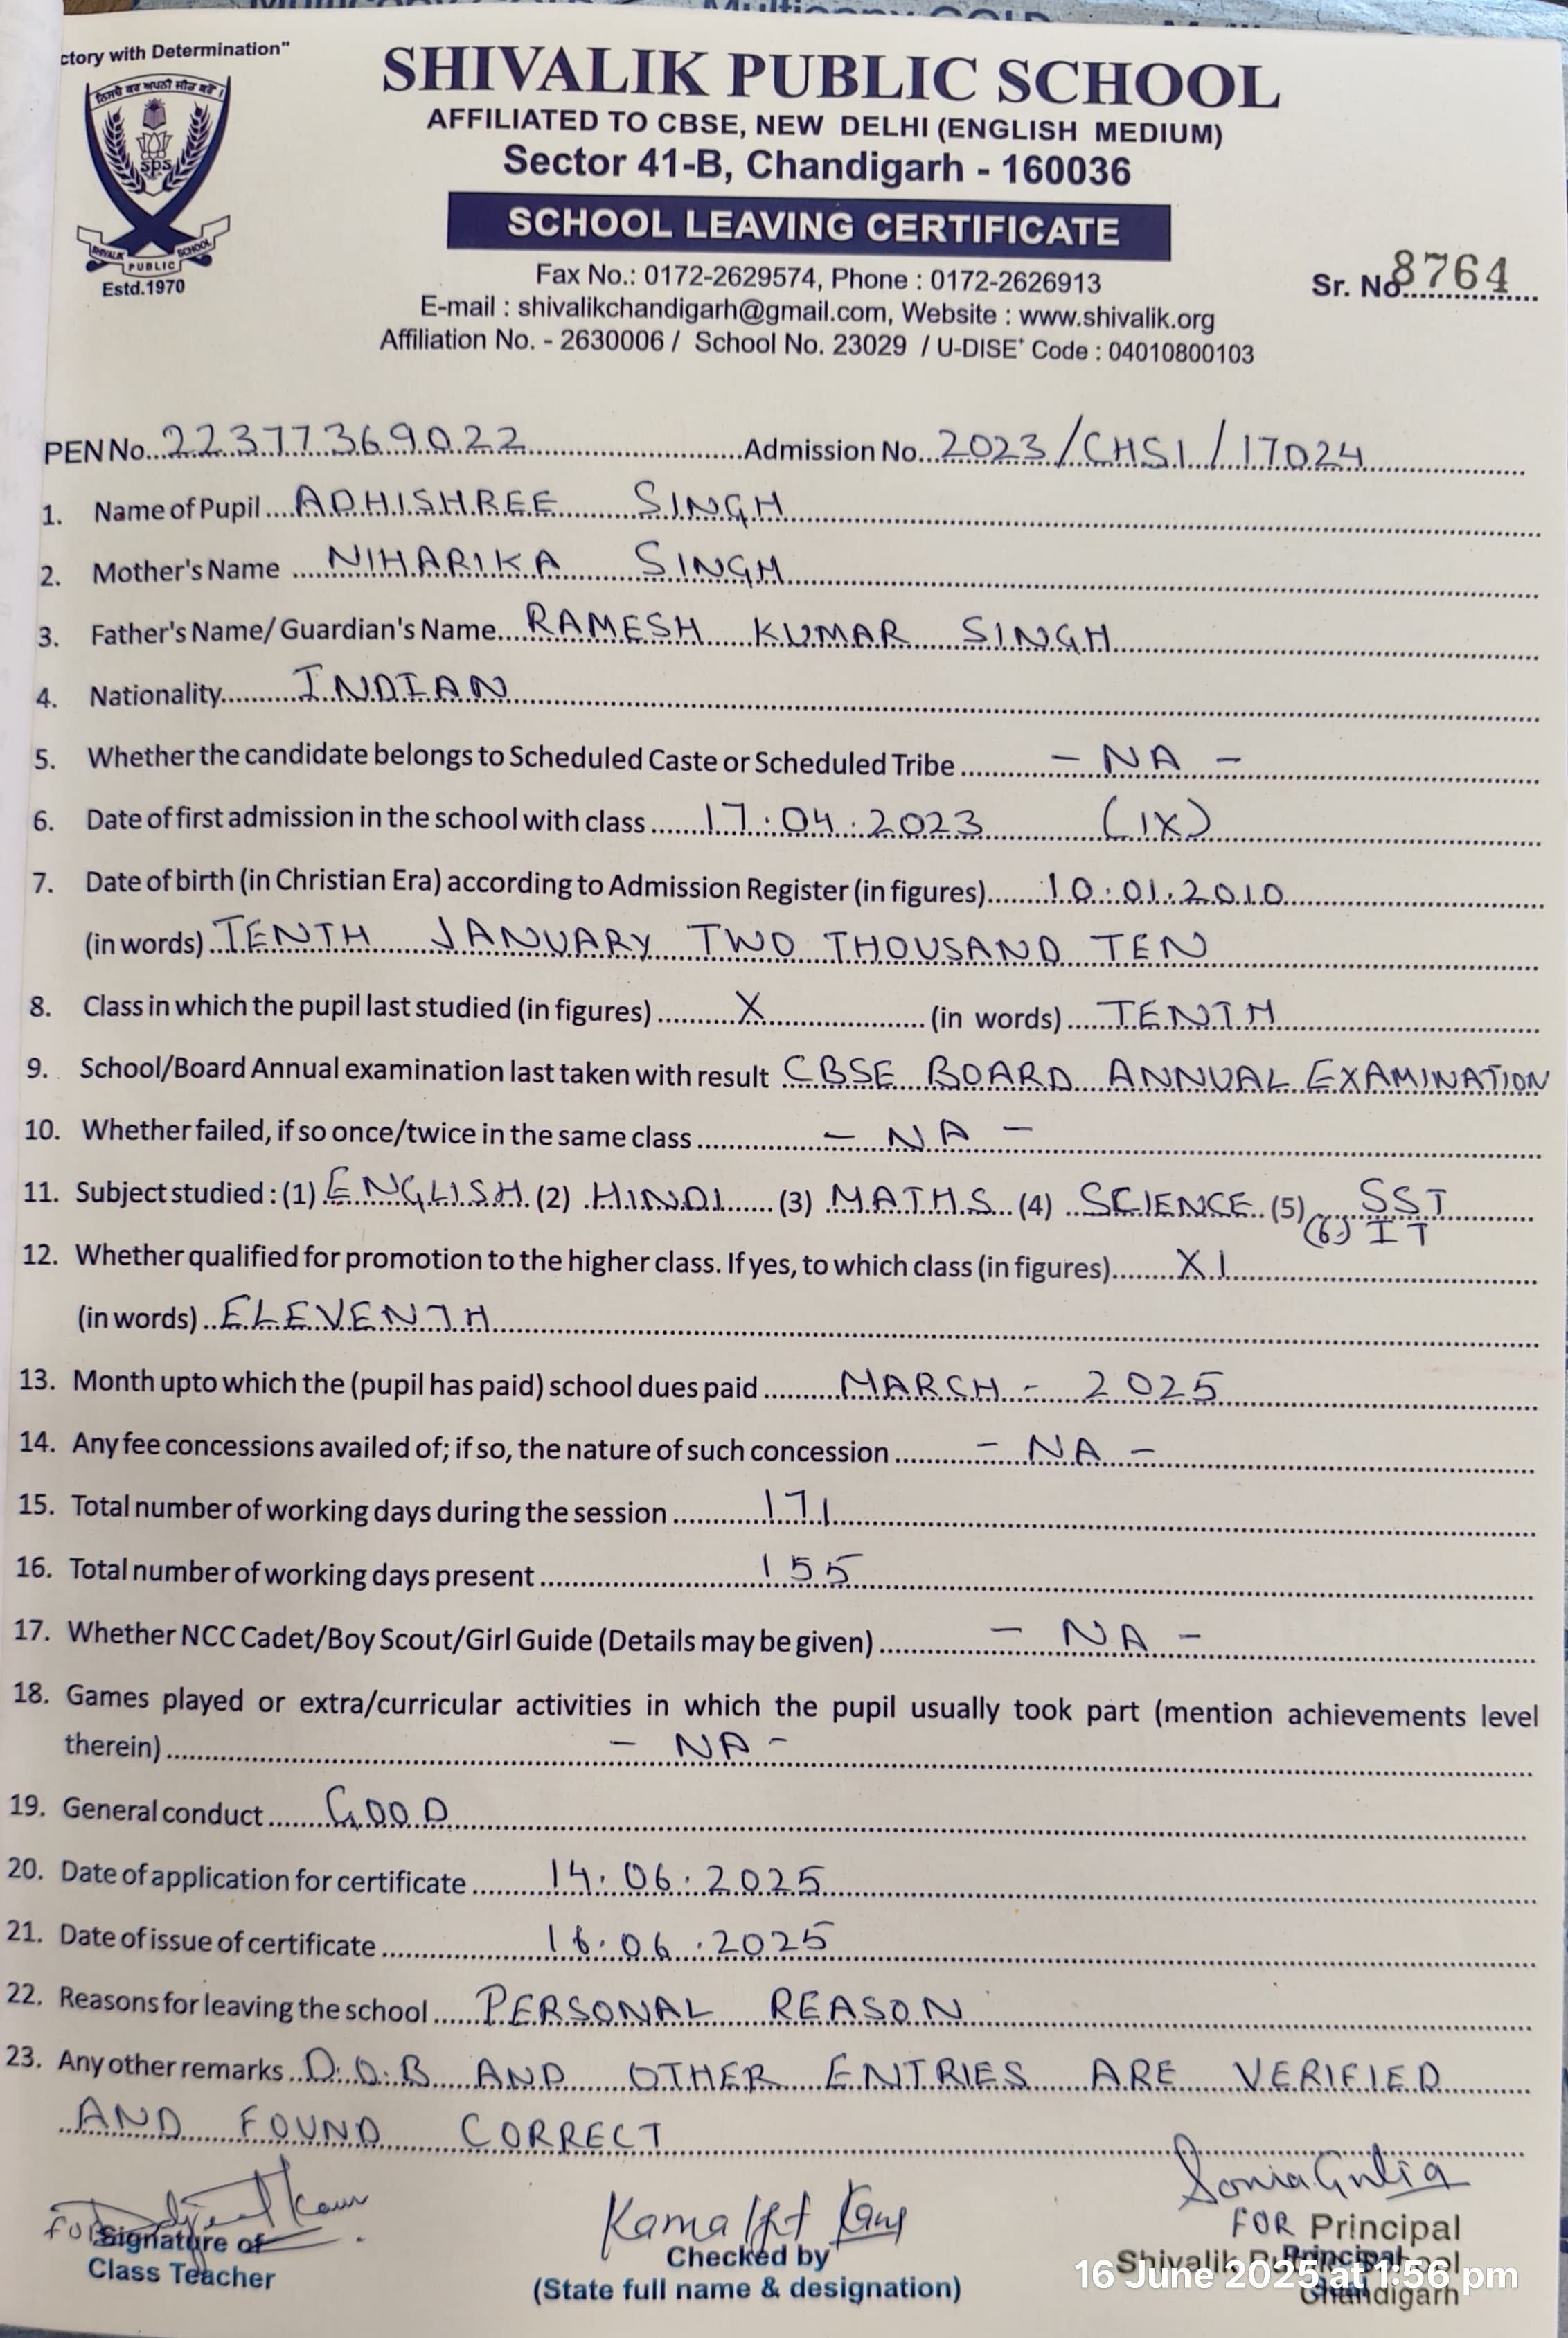 ctory with Determination"
SHIVALIK PUBLIC SCHOOL
AFFILIATED TO CBSE, NEW DELHI (ENGLISH MEDIUM)
Sector 41-B, Chandigarh - 160036
SCHOOL LEAVING CERTIFICATE
sps
SHIVALIK PUBLIC SCHOOL
Estd.1970
Fax No.: 0172-2629574, Phone : 0172-2626913
Sr. No. 8764
E-mail : shivalikchandigarh@gmail.com, Website : www.shivalik.org
Affiliation No. - 2630006 / School No. 23029 / U-DISE+ Code : 04010800103
PEN No. 22377369022 Admission No. 2023/CHSI/17024
1. Name of Pupil ADHISHREE SINGH
2. Mother's Name NIHARIKA SINGH
3. Father's Name/ Guardian's Name RAMESH KUMAR SINGH
4. Nationality INDIAN
5. Whether the candidate belongs to Scheduled Caste or Scheduled Tribe - NA -
6. Date of first admission in the school with class 17.04.2023 (IX)
7. Date of birth (in Christian Era) according to Admission Register (in figures) 10.01.2010
(in words) TENTH JANUARY TWO THOUSAND TEN
8. Class in which the pupil last studied (in figures) X (in words) TENTH
9. School/Board Annual examination last taken with result CBSE BOARD ANNUAL EXAMINATION
10. Whether failed, if so once/twice in the same class - NA -
11. Subject studied : (1) ENGLISH (2) HINDI (3) MATHS (4) SCIENCE (5) SST
(6) IT
12. Whether qualified for promotion to the higher class. If yes, to which class (in figures) XI
(in words) ELEVENTH
13. Month upto which the (pupil has paid) school dues paid MARCH - 2025
14. Any fee concessions availed of; if so, the nature of such concession - NA -
15. Total number of working days during the session 171
16. Total number of working days present 155
17. Whether NCC Cadet/Boy Scout/Girl Guide (Details may be given) - NA -
18. Games played or extra/curricular activities in which the pupil usually took part (mention achievements level
therein) - NA -
19. General conduct GOOD
20. Date of application for certificate 14.06.2025
21. Date of issue of certificate 16.06.2025
22. Reasons for leaving the school PERSONAL REASON
23. Any other remarks D.O.B AND OTHER ENTRIES ARE VERIFIED
AND FOUND CORRECT
Sonia Gulia
FOR Principal
Shivalik Public School
Chandigarh
Principal
FOR
Signature of
Class Teacher
Checked by
(State full name & designation)
16 June 2025 at 1:56 pm